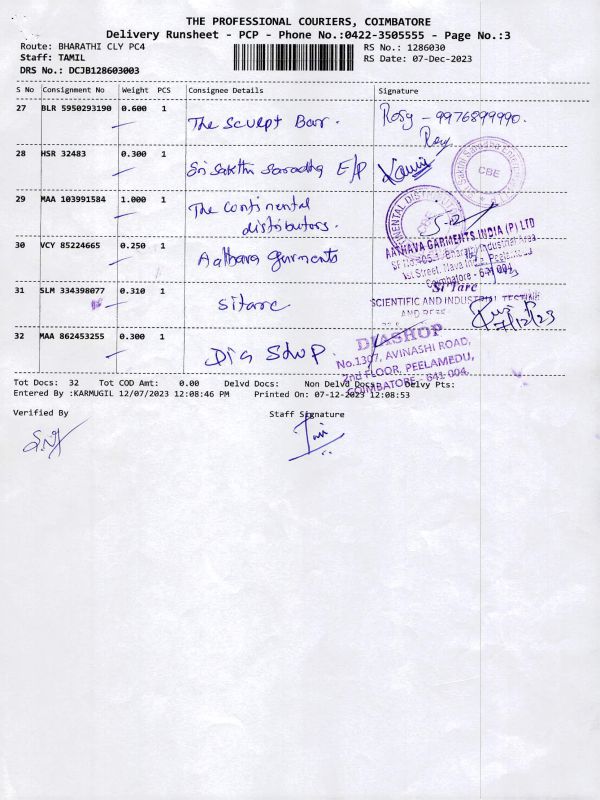 THE PROFESSIONAL COURIERS, COIMBATORE
Delivery Runsheet - PCP - Phone No.:0422-3505555 - Page No.:3
Route: BHARATHI CLY PC4
RS No.: 1286030
Staff: TAMIL
RS Date: 07-Dec-2023
DRS No.: DCJB128603003
S No Consignment No Weight PCS Consignee Details Signature
27 BLR 5950293190 0.600 1 The Sculpt Bar. Rosy - 9976899990.
Rosy
28 HSR 32483 0.300 1 Sri Sakthi Saradha E/P
CBE
29 MAA 103991584 1.000 1 The continental
distributors.
30 VCY 85224665 0.250 1 Aathava garments
AATHAVA GARMENTS INDIA (P) LTD
1st Street, Nava India, Peelamedu
Coimbatore - 641 004
31 SLM 334398077 0.310 1 sitarc
Si'Tarc
SCIENTIFIC AND INDUSTRIAL TESTING
7/12/23
32 MAA 862453255 0.300 1 Dia Shop.
DIASHOP
No.1397, AVINASHI ROAD,
2nd FLOOR, PEELAMEDU,
COIMBATORE - 641 004.
Tot Docs: 32 Tot COD Amt: 0.00 Delvd Docs: Non Delvd Docs: Delvy Pts:
Entered By :KARMUGIL 12/07/2023 12:08:46 PM Printed On: 07-12-2023 12:08:53
Verified By Staff Signature